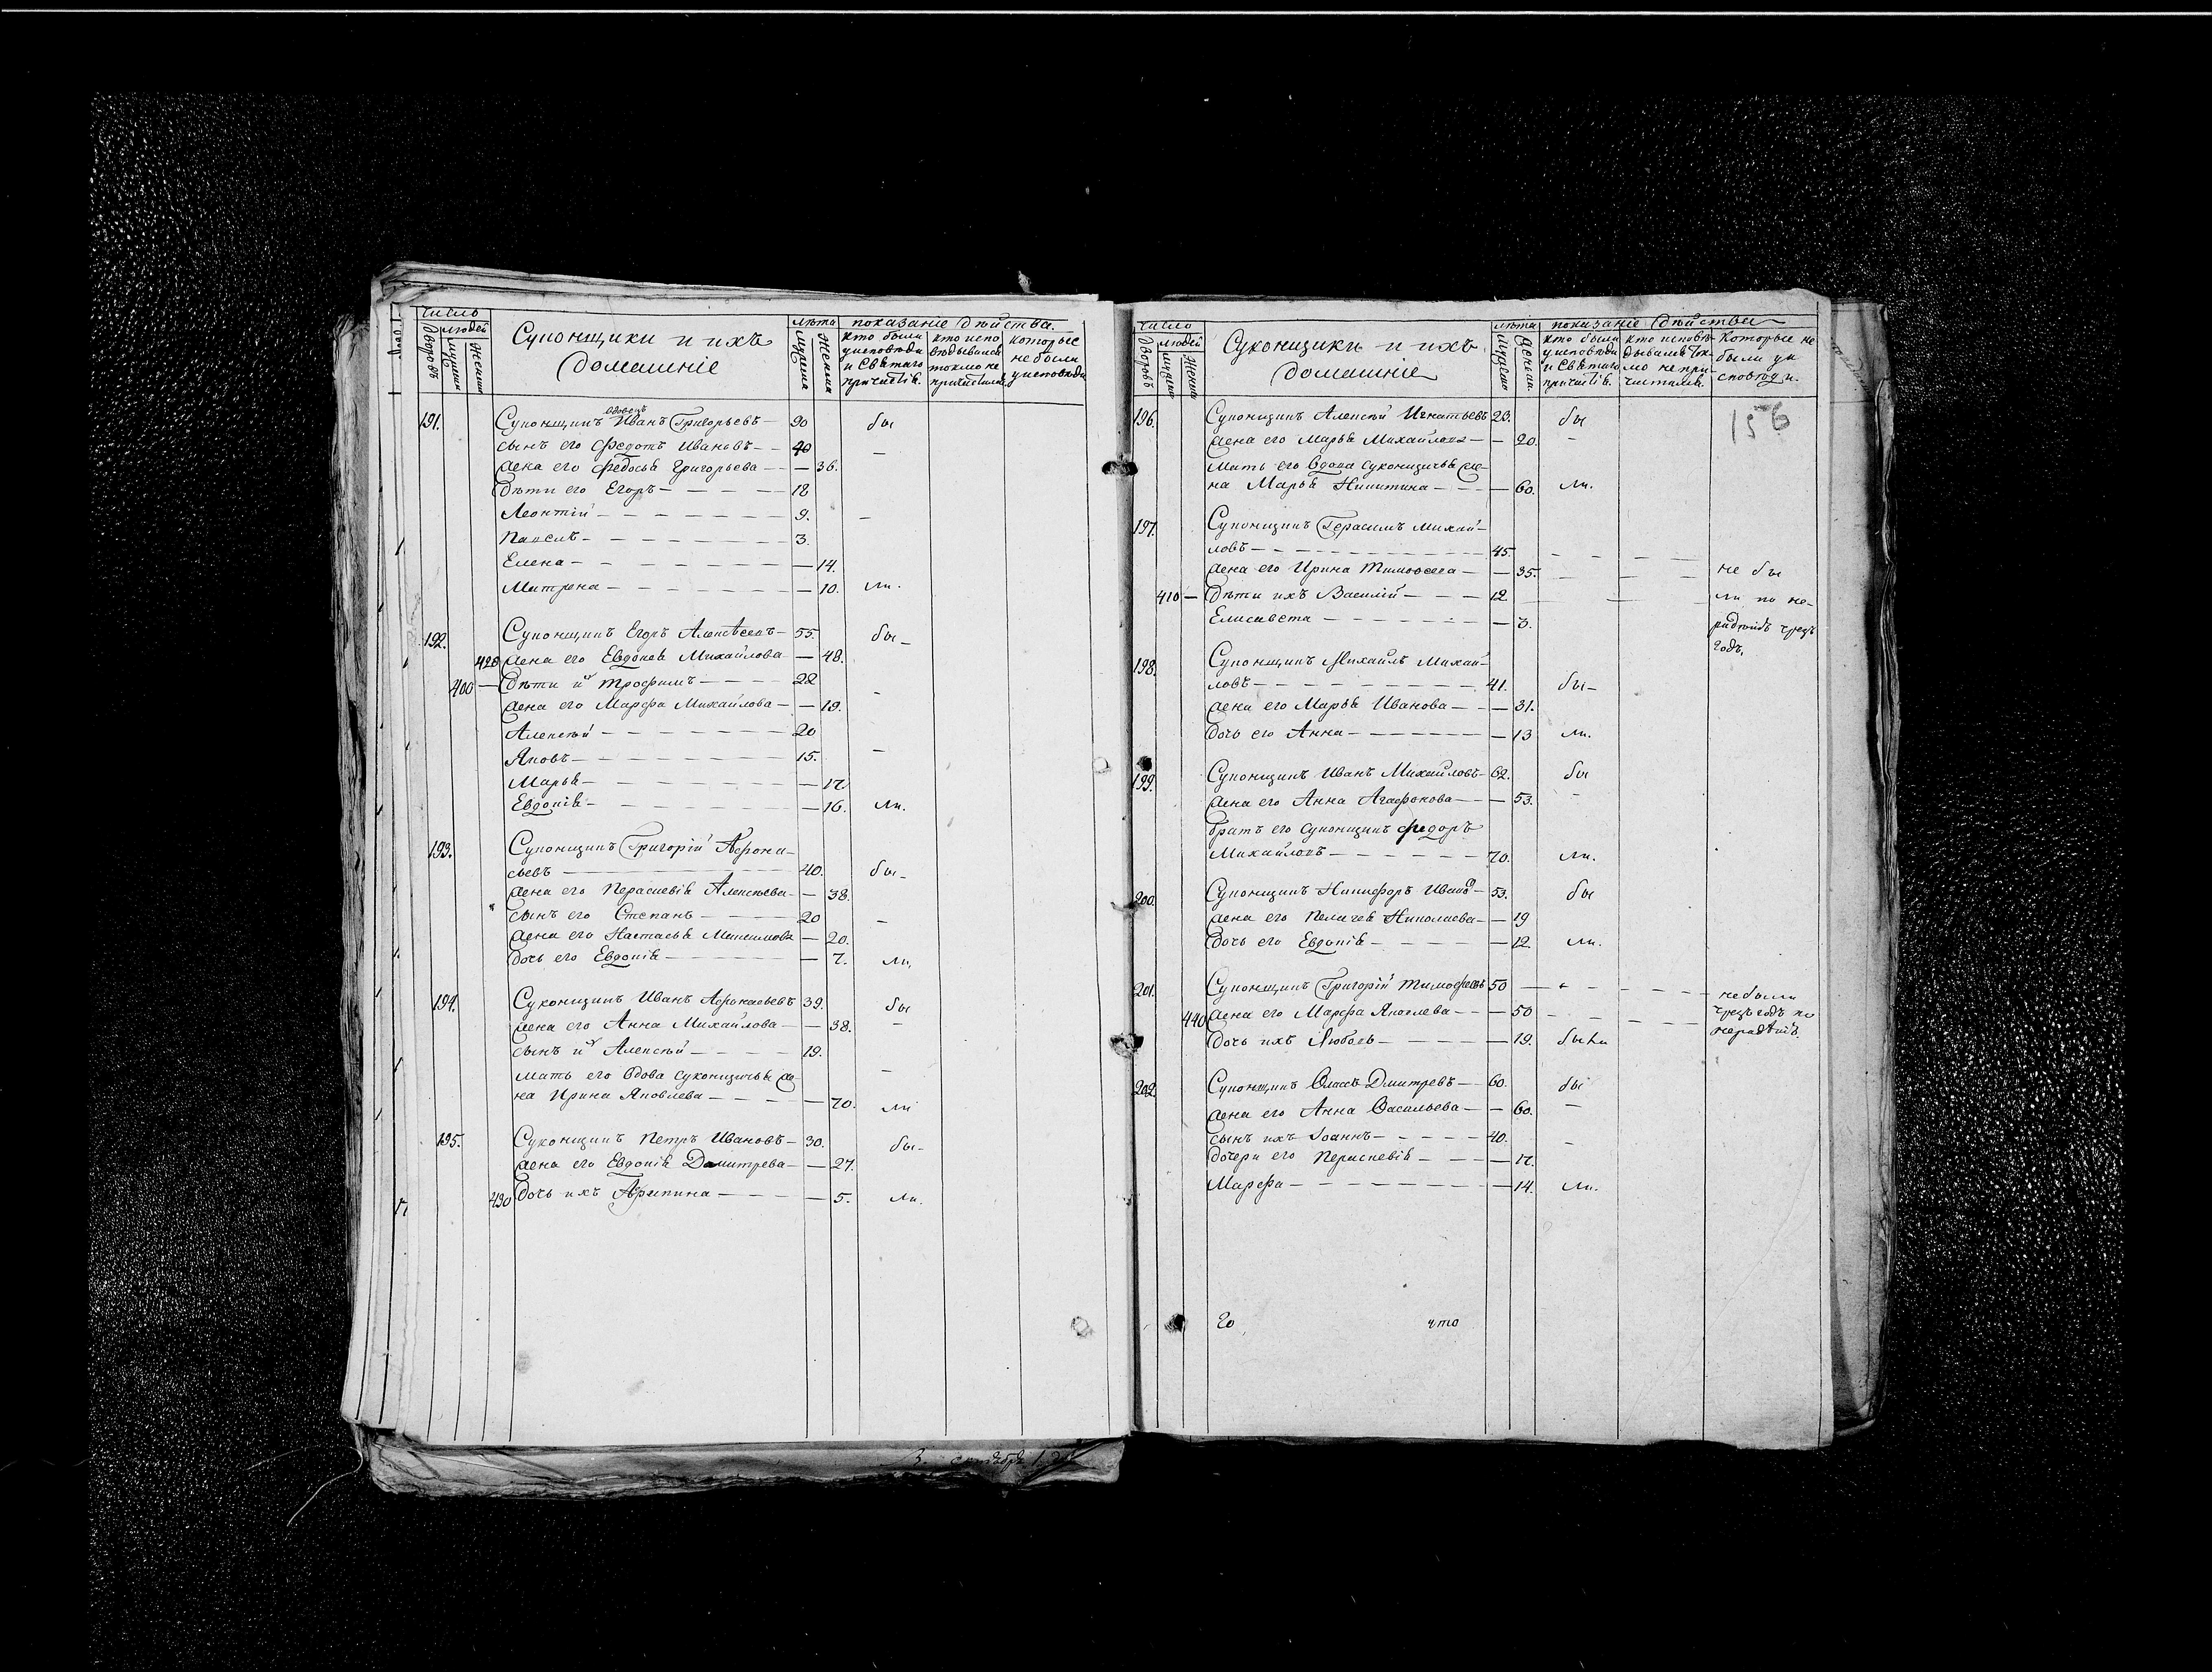 число
людей
дворовъ
мущинъ
женщинъ
Суконщики и ихъ
домашніе
лѣта
мужеска
женска
показаніе дѣйства.
кто были у исповѣди и Святаго причастія.
кто исповѣдывался токмо не причастился
которые не были у исповѣди
191. Суконщикъ вдовецъ Иванъ Григорьевъ — 90 бы
сынъ его Федотъ Ивановъ — 40 —
жена его Федосья Григорьева — 36.
дѣти его Егоръ — 12
Леонтій — 9. —
Павелъ — 3.
Елена — 14.
Матрена — 10. ли.
192. Суконщикъ Егоръ Алексѣевъ — 55. бы —
420 жена его Евдокея Михайлова — 48.
400 — дѣти их Трофимъ — 22 —
жена его Марфа Михайлова — 19.
Алексѣй — 20
Яковъ — 15. —
Марья — 17
Евдокія — 16. ли.
193. Суконщикъ Григорій Афона-
сьевъ — 40. бы —
жена его Параскевія Алексѣева — 38.
сынъ его Степанъ — 20 —
жена его Настасья Максимова — 20.
дочь его Евдокія — 7. ли,
194. Суконщикъ Иванъ Афонасьевъ 39. бы
жена его Анна Михайлова — 38. —
сынъ их Алексѣй — 19.
мать его вдова суконщичья же- —
на Ирина Яковлева — 70. ли
195. Суконщикъ Петръ Ивановъ — 30. бы —
жена его Евдокія Дмитрева — 27.
430 дочь ихъ Агрипина — 5. ли.
число
людей
дворовъ
мущинъ
женщинъ
Суконщики и ихъ
домашніе
лѣта
мужеска
женска.
показаніе дѣйства
кто были у исповѣди и Святаго причастія.
кто исповѣдывался токмо не причастился.
Которые не были у исповѣди.
156
196. Суконщикъ Алексѣй Игнатьевъ 23. бы
жена его Марья Михайлова — 20. —
мать его вдова суконщичья же-
на Марья Никитина — 60. ли.
197. Суконщикъ Герасимъ Михай-
ловъ — 45. —
жена его Ирина Тимофеева — 35. — не бы
410 — дѣти ихъ Василій — 12 — ли по не-
Елисавета — 3. радѣнію чрезъ
годъ.
198. Суконщикъ Михаилъ Михай-
ловъ — 41. бы —
жена его Марья Иванова — 31.
дочь его Анна — 13 ли.
199. Суконщикъ Иванъ Михайловъ — 62. бы
жена его Анна Агафонова — 53. —
братъ его суконщикъ Федоръ
Михайловъ — 70. ли.
200. Суконщикъ Никифоръ Иванов — 53. бы
жена его Пелагея Николаева — 19
дочь его Евдокія — 12. ли.
201. Суконщикъ Григорій Тимофеевъ 50 — небыли
440 жена его Марфа Яковлева — 50 — чрезъ годъ по
дочь ихъ Любовь — 19. были нерадѣнію.
202. Суконщикъ Власъ Дмитревъ — 60. бы
жена его Анна Васильева — 60. —
сынъ ихъ Іоаннъ — 40. —
дочери его Параскевія — 17.
Марфа — 14. ли.
что